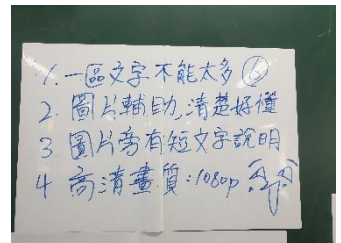 1. 一區文字不能太多
2. 圖片輔助,清楚好懂
3. 圖片旁有短文字說明
4 高清畫質:1080p